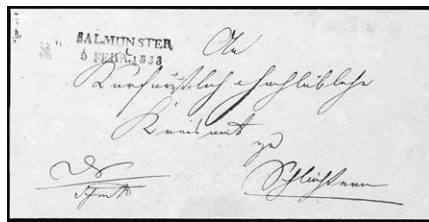 SALMÜNSTER
6 FEBR. 1833
An
Kurfürstlich hochlöbliche
Kreisamt
zu
Schlüchtern